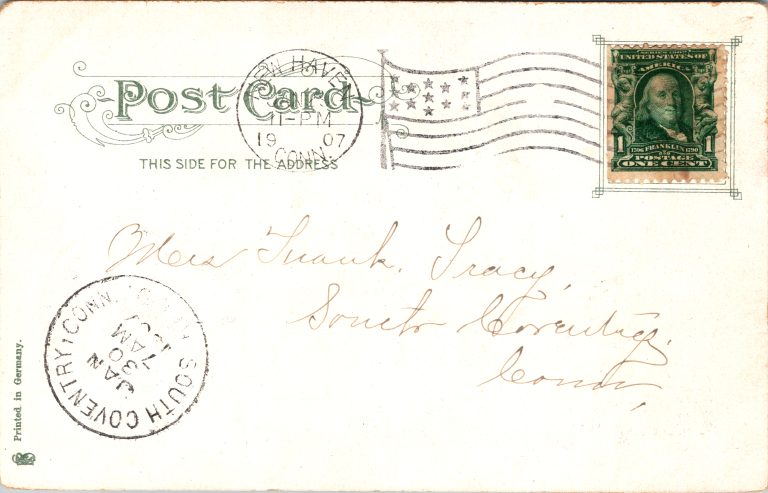 Post Card
THIS SIDE FOR THE ADDRESS
NEW HAVEN
11-PM
19 07
CONN.
SERIES 1902
UNITED STATES OF
AMERICA
1 1
1706 FRANKLIN 1790
POSTAGE
ONE CENT
Mrs Frank. Tracy,
South Coventry.
Conn,
SOUTH COVENTRY, CONN.
JAN
30
7AM
1907
Printed in Germany.